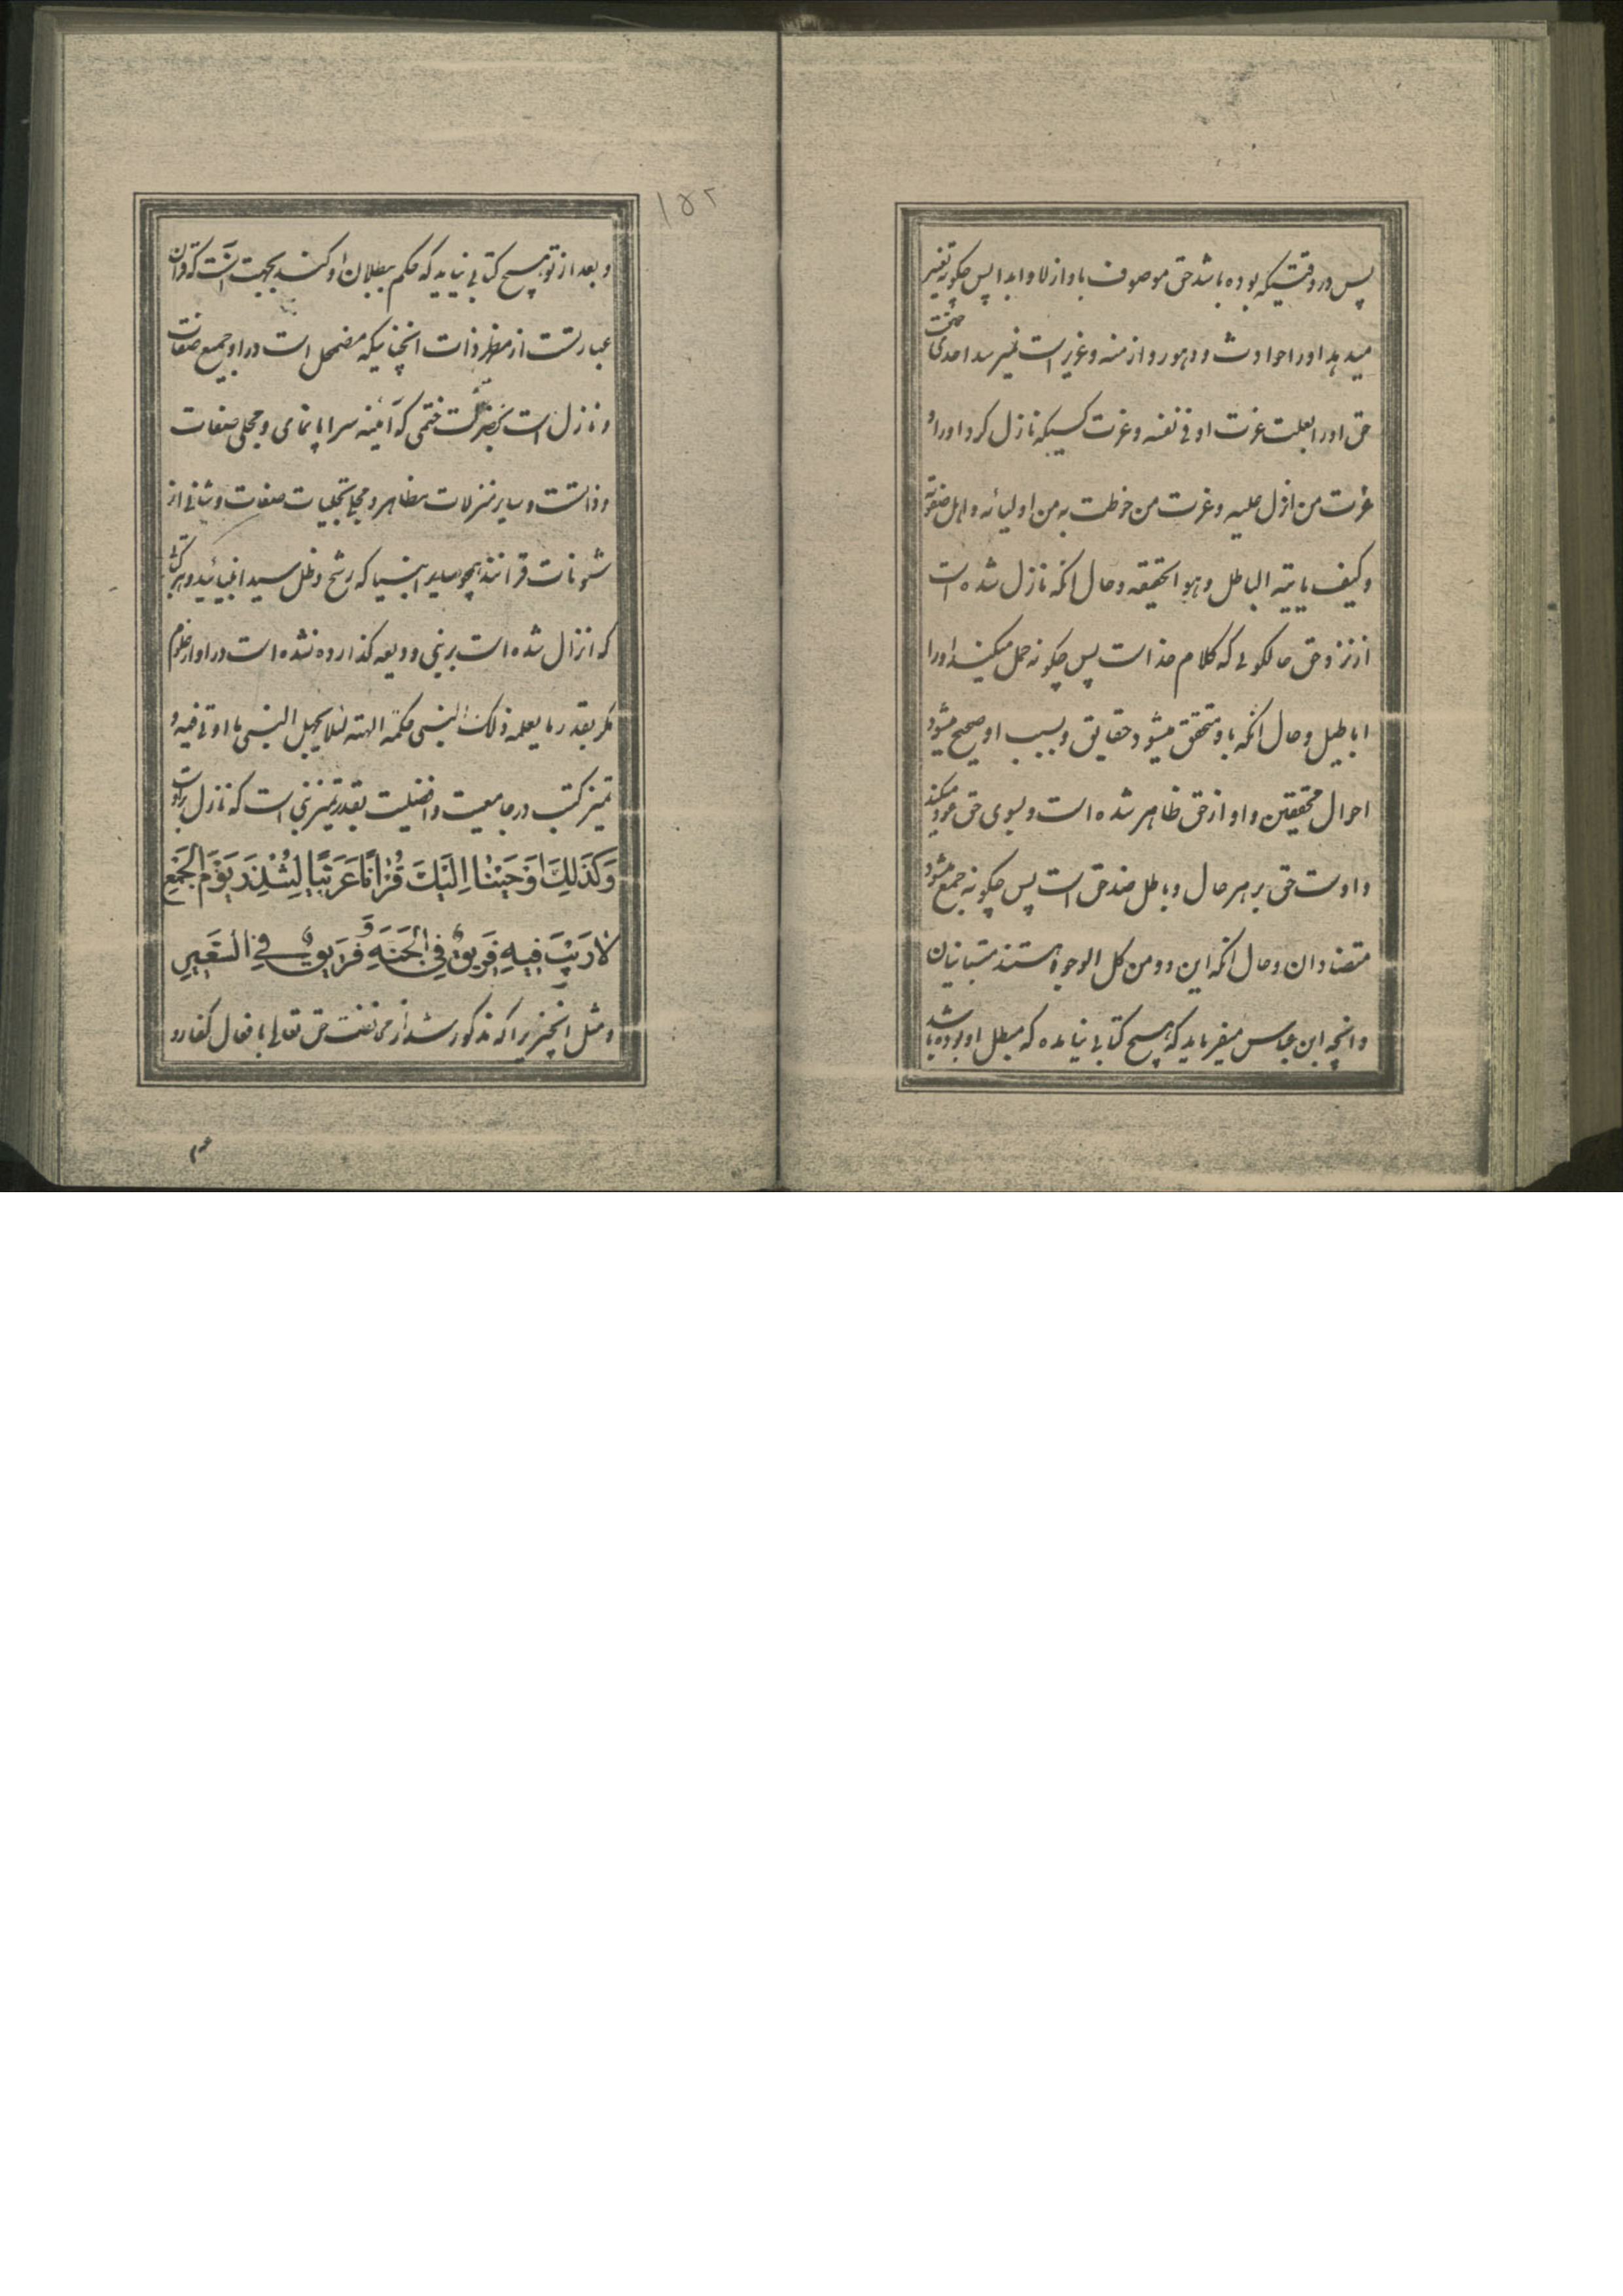 پس در وقتیکه بوده باشد حق موصوف باو ازلا و ابدا پس چکونه تغییر
میدهد او را حوادث و دهور و ازمنه و عزیز است نمیرسد احدی حقیقت
حق او را بعلت عزت او فی نفسه و عزت کسیکه نازل کرد او را و
عزت من انزل علیه و عزت من خوطب به من اولیائه و اهل صفوته
و کیف یاتیه الباطل و هو الحقیقه و حال انکه نازل شده است
از نزد حق حالکونی که کلام خداست پس چکونه حمل میکنند او را
اباطیل و حال انکه باو متحقق میشود حقایق و بسبب او صحیح میشود
احوال محققین و او از حق ظاهر شده است و بسوی حق عود میکند
و اوست حق بر هر حال و باطل ضد حق است پس چکونه جمع میشود
متضادان و حال انکه این دو من کل الوجوه هستند متباینان
و انچه ابن عباس میفرماید که هیچ کتابی نیامده که مبطل او بوده باشد
۱۵۲
و بعد از تو هیچ کتابی نیاید که حکم ببطلان او کند بجهت آنست که قرآن
عبارتست از مظهر ذات انچنانیکه مضمحل است در او جمیع صفات
و نازل است بحضرت ختمی که آئینه سراپا نمای و مجلی صفات
و ذاتست و سایر منزلات مظاهر و مجلی تجلیات صفات و شانی از
شئونات قرانند همچو سایر انبیا که رشح و ظل سید انبیائید و هر کتابی
که انزال شده است بر نبی و ودیعه کذارده نشده است در او از علوم
مکر بقدر ما یعلمه ذلک النبی حکمة الهیة لئلا یجهل النبی ما اوتی فیه و
تمیز کتب در جامعیت و افضلیت بقدر تمیز نبی است که نازل براوست
وَكَذَلِكَ اَوْحَيْنَا اِلَيْكَ قُرْاٰنًا عَرَبِيًّا لِتُنْذِرَ يَوْمَ الْجَمْعِ
لَا رَيْبَ فِيهِ فَرِيقٌ فِي الْجَنَّةِ وَفَرِيقٌ فِي السَّعِيرِ
و مثل انچیز یرا که مذکور شد از مخالفت حق تعالی با فعال کفار در